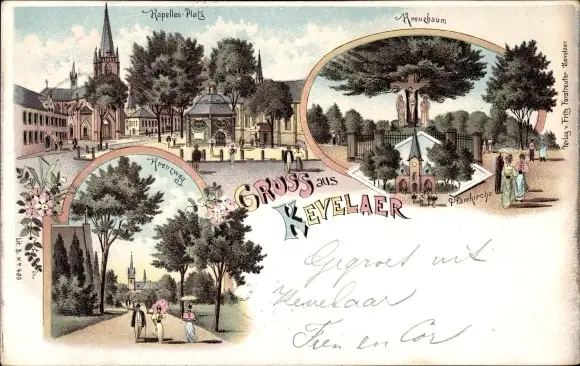 Kapellen-Platz
Kreuzbaum
Kreuzweg
Pfarrkirche
GRUSS aus
KEVELAER
Gegroet uit
Kevelaar
Fien en Cor
Verlag v. Fritz Forstreuter, Kevelaer
Lit. B. No. 489